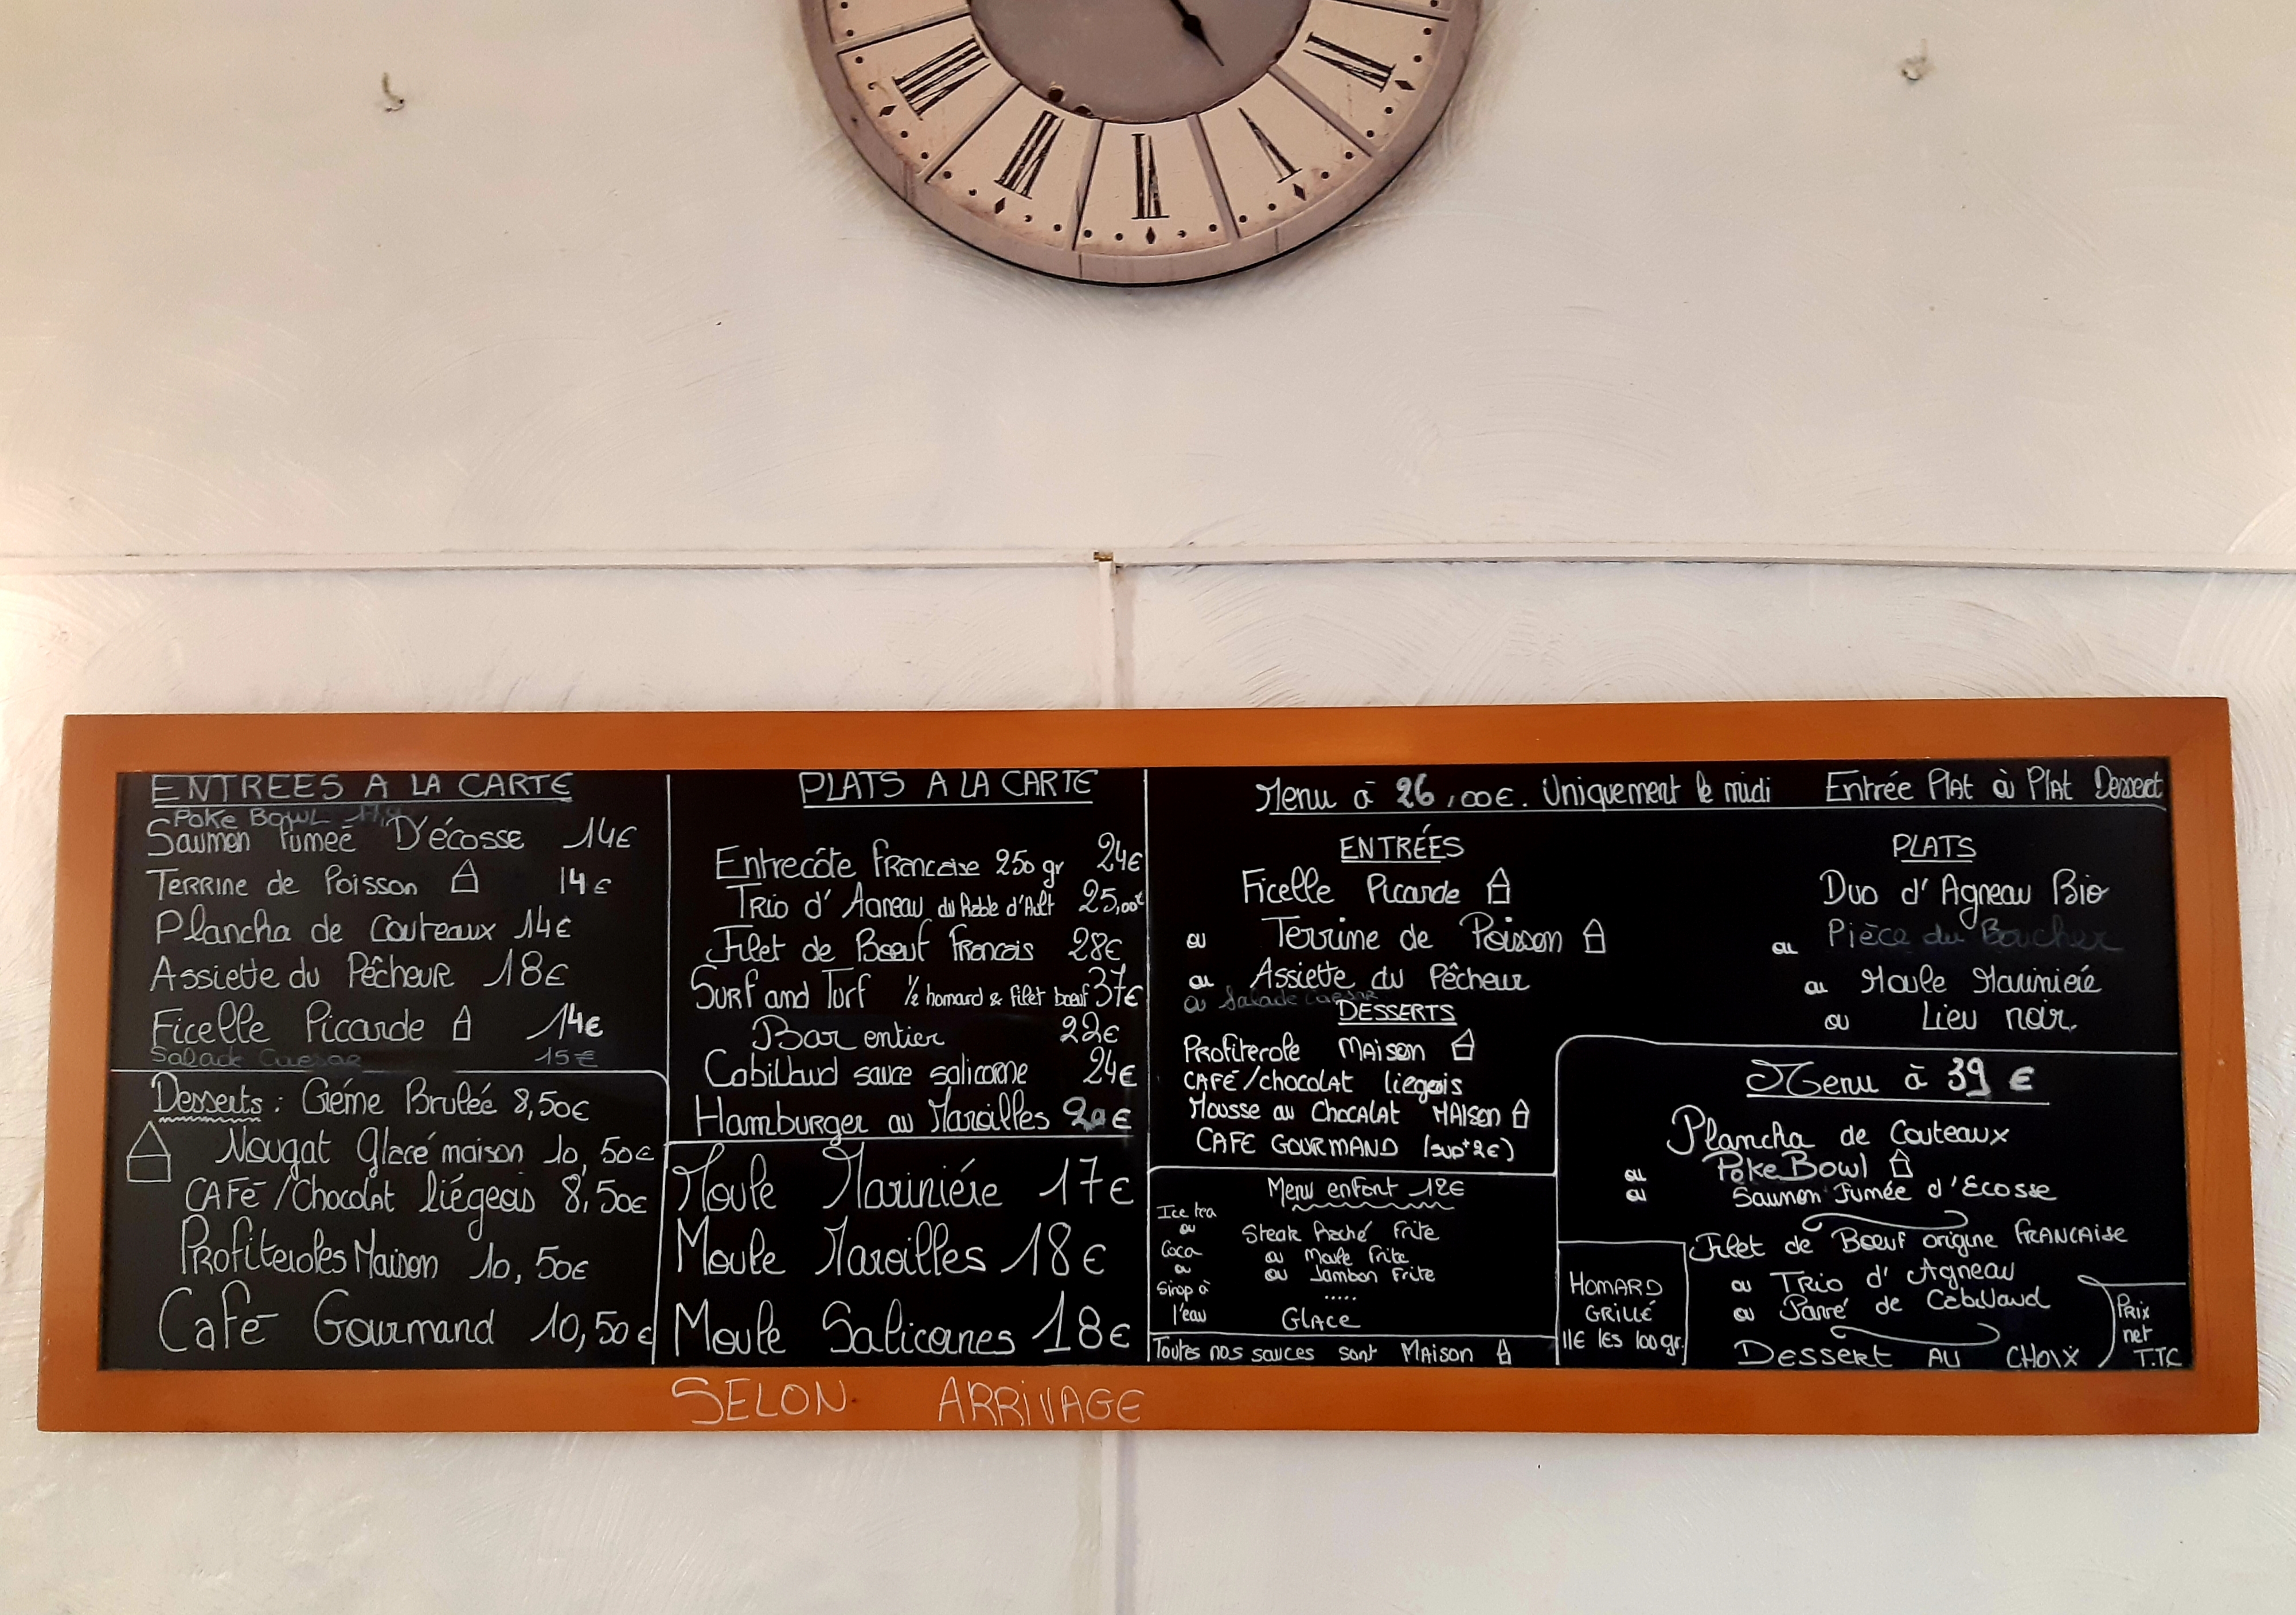 IIII
V
VI
VII
VIII
ENTREES A LA CARTE
Poke Bowl
Saumon Fumeé D'écosse 14€
Terrine de Poisson 14€
Plancha de Couteaux 14€
Assiette du Pêcheur 18€
Ficelle Picarde 14€
Salade Caesar 15€
Desserts : Créme Bruleé 8,50€
Nougat Glacé maison 10,50€
CAFÉ/Chocolat liégeois 8,50€
Profiteroles Maison 10,50€
Café Gourmand 10,50€
PLATS A LA CARTE
Entrecôte Francaise 250 gr 24€
Trio d'Agneau d'Ault 25,00€
Filet de Bœuf Francais 28€
Surf and Turf 1/2 homard & filet bœuf 37€
Bar entier 22€
Cabillaud sauce salicorne 24€
Hamburger au Maroilles €
Moule Mariniére 17€
Moule Maroilles 18€
Moule Salicornes 18€
Menu à 26,00€. Uniquement le midi Entrée Plat où Plat Dessert
ENTRÉES
Ficelle Picarde
ou Terrine de Poisson
ou Assiette du Pêcheur
ou Salade Caesar
DESSERTS
Profiterole Maison
CAFÉ/chocolat liegeois
Mousse au Chocolat MAison
CAFE GOURMAND (sup+2€)
PLATS
Duo d'Agneau Bio
ou Pièce du Boucher
ou Moule Marinieré
ou Lieu noir.
Menu enfant 12€
Ice tea
ou
Coca
ou
Sirop à
l'eau
Steak Haché Frite
ou Moule Frite
ou Jambon Frite
.....
GLACE
Toutes nos sauces sont MAison
Menu à 39 €
Plancha de Couteaux
ou Poke Bowl
ou Saumon Fumée d'Ecosse
Filet de Bœuf origine FRANCAise
ou Trio d'Agneau
ou Pavé de Cabillaud
Dessert AU CHOIX
HOMARD
GRILLÉ
11€ les 100gr.
Prix
net
T.TC
SELON ARRIVAGE